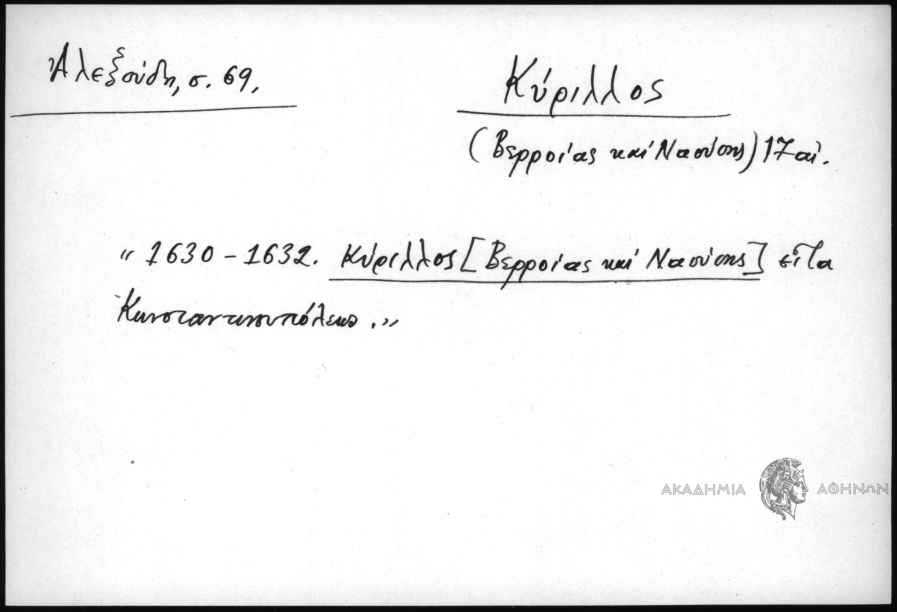 Ἀλεξούδη, σ. 69.
Κύριλλος
(Βερροίας καὶ Ναούσης) 17 αἰ.
« 1630 - 1632. Κύριλλος [Βερροίας καὶ Ναούσης] εἶτα
Κωνσταντινουπόλεως. »
ΑΚΑΔΗΜΙΑ ΑΘΗΝΩΝ